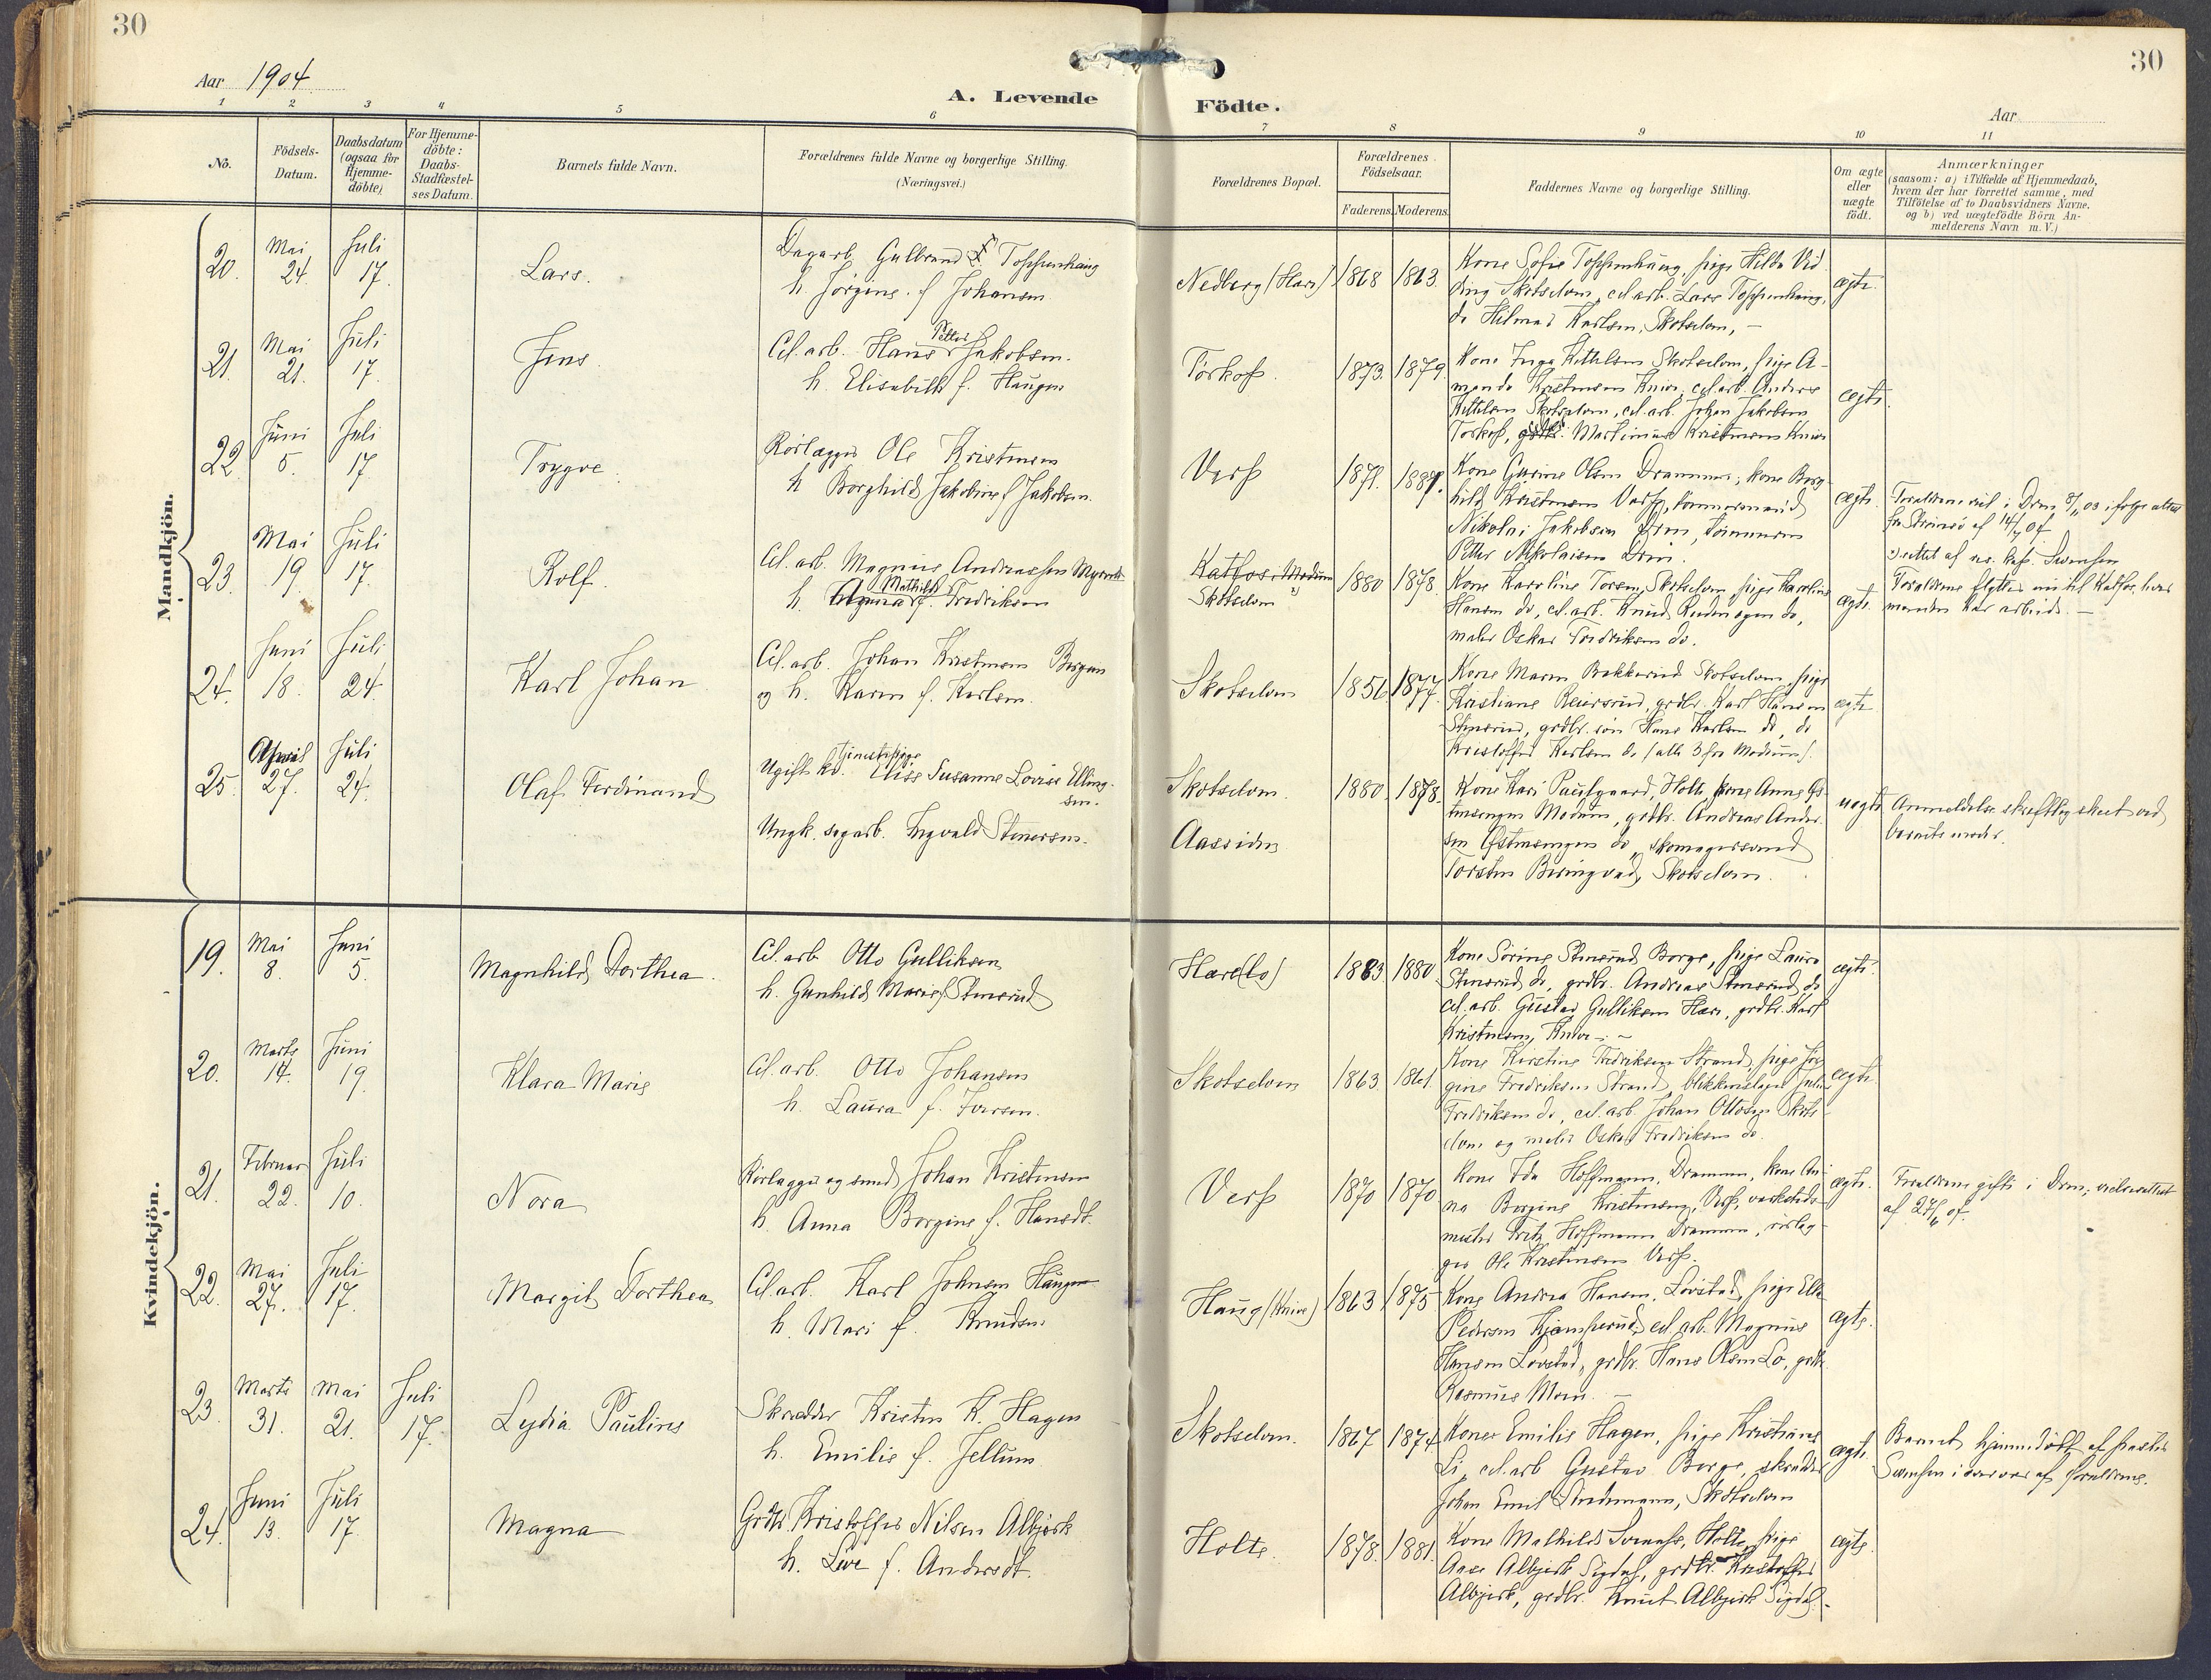 30
30
Aar 1904
A. Levende
Födte.
Aar
1 2 3 4 5 6 7 8 9 10 11
Nö.
Födsels-Datum.
Daabsdatum (ogsaa for Hjemme-döbte)
For Hjemme-döbte: Daabs-Stadfæstel-ses Datum.
Barnets fulde Navn.
Forældrenes fulde Navne og borgerlige Stilling.
(Næringsvei.)
Forældrenes Bopæl.
Forældrenes Födselsaar.
Faderens. Moderens.
Faddernes Navne og borgerlige Stilling.
Om ægte eller uægte födt.
Anmærkninger
(saasom: a) i Tilfælde af Hjemmedaab,
hvem der har forrettet samme, med
Tilföielse af to Daabsvidners Navne,
og b) ved uægtefödte Börn An-
melderens Navn m.V.)
Mandkjön.
20. Mai 24. Juli 17. Lars.
Dagarb. Gulbrand Toppenhaug
h. Jörgine f. Johansen
Nedberg (Hære) 1868 1863.
Kone Sofie Toppenhaug, pige Hilda
Skotselven, cel.arb. Lars Toppenhaug,
do Hilmar Karlsen, Skotselven, —
ægte.
21. Mai 21. Juli 17. Jens.
Cel. arb. Hans Petter Jakobsen.
h. Elisabeth f. Haugen
Torkop. 1873. 1879.
Kone Inga Kittilsen Skotselven, pige A-
manda Kristensen Knive, cel.arb. Anders
Kittilsen Skotselven, cel. arb. Johan Jakobsen
Torkop, Martinius Kristensen Knive
ægte.
22. Juni 5. Juli 17 Trygve.
Rörlægger Ole Kristensen
h Borghild Jakobine f Jakobsen.
Verp 1871. 1881.
Kone Gurine Olsen Drammen, kone Borg-
hild Kristensen Verp, tömmermand
Nikolai Jakobsen Drm, tömmerm
Petter Nikolaisen Drm.
ægte.
Forældrene viet i Drm 8/11 03 ifölge attest
fra Strömsö af 14/7 04
23. Mai 19. Juli 17. Rolf.
Cel. arb. Magnus Andreassen
h. Mathilde f. Fredriksen
Katfos i Modum
Skotselven 1880 1878.
Kone Karoline Torsen, Skotselven, pige Karoline
Hansen do, cel.arb. Knud do,
maler Oskar Fredriksen do.
ægte.
rettet af res. kap. Svensen
Forældrene flytter nu til Katfos, hvor
manden har arbeide. —
24. Juni 18. Juli 24. Karl Johan
Cel. arb. Johan Kristensen Bergan
og h. Karen f. Karlsen.
Skotselven 1856. 1877.
Kone Maren Bakkerud Skotselven, pige
Kristiane Reiersrud, grdbr. Karl Hansen
Stenerud, grdbr. sön Hans Karlsen do, do
Kristoffer Karlsen do (alle 3 fra Modum).
ægte
25. April 27. Juli 24. Olaf Ferdinand
Ugift kv. tjenestepige Elise Susanne Lovise Elling-
sen.
Ungk. sagarb. Ingvald Stenersen.
Skotselven. 1880. 1878.
Aassiden
Kone Kari Paulsgaard, Holte, kone Anne Ös-
tensengen Modum, grdbr. Andreas Ander-
sen Östensengen do, skomagersvend
Torsten Skotselven.
uægte
Anmeldelse skriftlig skeet ved
barnets moder.
Kvindekjön.
19. Mai 8. Juni 5. Magnhild Dorthea.
Cel. arb Otto Gulliksen
h. Gunhild Marie f. Stenerud
Hære (Lo) 1883. 1880
Kone Sörine Stenerud Borge, pige Laura
Stenerud do, grdbr. Andreas Stenerud do
cel. arb. Gustav Gulliksen Hære, grdbr. Karl
Kristensen, Knive.
ægte.
20. Marts 14. Juni 19. Klara Marie
Cel. arb. Otto Johansen
h. Laura f. Iversen.
Skotselven 1863. 1861.
Kone Kirstine Fredriksen Strand, pige Jör-
gine Fredriksen Strand, blikkenslager Julius
Fredriksen do, cel. arb. Johan Ottosen Skots-
elven og maler Oskar Fredriksen do.
ægte.
21. Februar 22. Juli 10. Nora
Rörlægger og smed Johan Kristensen
h. Anna Borgine f. Hansdt.
Verp 1870 1870
Kone Ida Hoffmann, Drammen, kone An-
na Borgine Kristensen, Verp, værksteds-
mester Fritz Hoffmann Drammen, rörlæg-
ger Ole Kristensen Verp.
ægte.
Forældrene gifte i Drm, vielsesattest
af 27/6 04.
22. Mai 27. Juli 17. Margit Dorthea
Cel. arb. Karl Johnsen Haugen
h. Mari f. Knudsen
Haug (Knive) 1863 1875
Kone Andrea Hansen, Lövstad, pige Ella
Pedersen Kjemperud, cel arb. Magnus
Hansen Lövstad, grdbr. Hans Olsen Lo, grdbr
Rasmus Moen. —
ægte.
23. Marts 31. Mai 21. Juli 17. Lydia Pauline
Skrædder Kristen K. Hagen
h. Emilie f. Jellum
Skotselven. 1867 1874
Kone Emilie Hagen, pige Kristiane
Li, cel. arb Gustav Borge, skrædder
Johan Emil Lindemann, Skotselven
ægte.
Barnet hjemmedöbt af prester
Svensen i overvær af forældrene.
24. Juni 13. Juli 17. Magna
Grdbr. Kristoffer Nilsen Albjerk
h. Live f. Andersdt.
Holte. 1878. 1881.
Kone Mathilde Holte, pige
Aase Albjerk Sigdal, grdbr. Kristoffer
Albjerk, grdbr. Knut Albjerk Sigdal.
ægte.